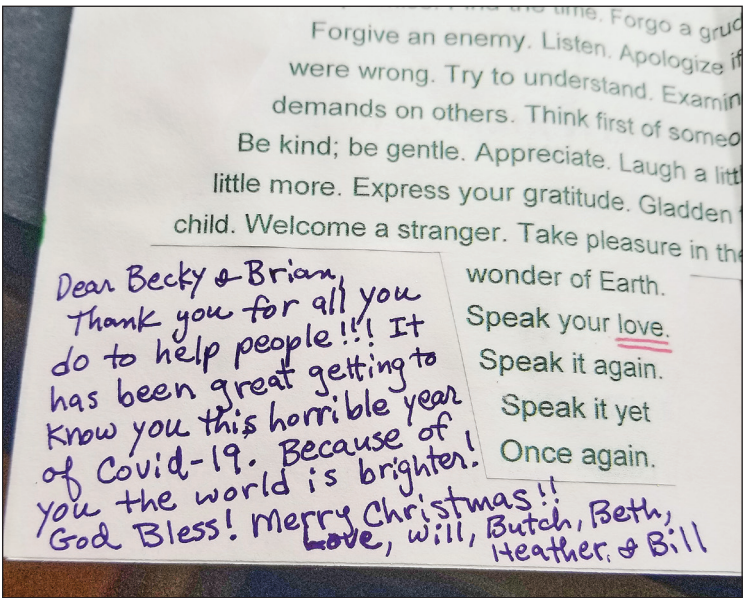 the time. Forgo a grud
Forgive an enemy. Listen. Apologize if
were wrong. Try to understand. Examin
demands on others. Think first of someo
Be kind; be gentle. Appreciate. Laugh a littl
little more. Express your gratitude. Gladden
child. Welcome a stranger. Take pleasure in the
wonder of Earth.
Speak your love.
Speak it again.
Speak it yet
Once again.
Dear Becky & Brian,
Thank you for all you
do to help people!!! It
has been great getting to
know you this horrible year
of Covid-19. Because of
you the world is brighter!
God Bless! Merry Christmas!!
Love, Will, Butch, Beth,
Heather, & Bill